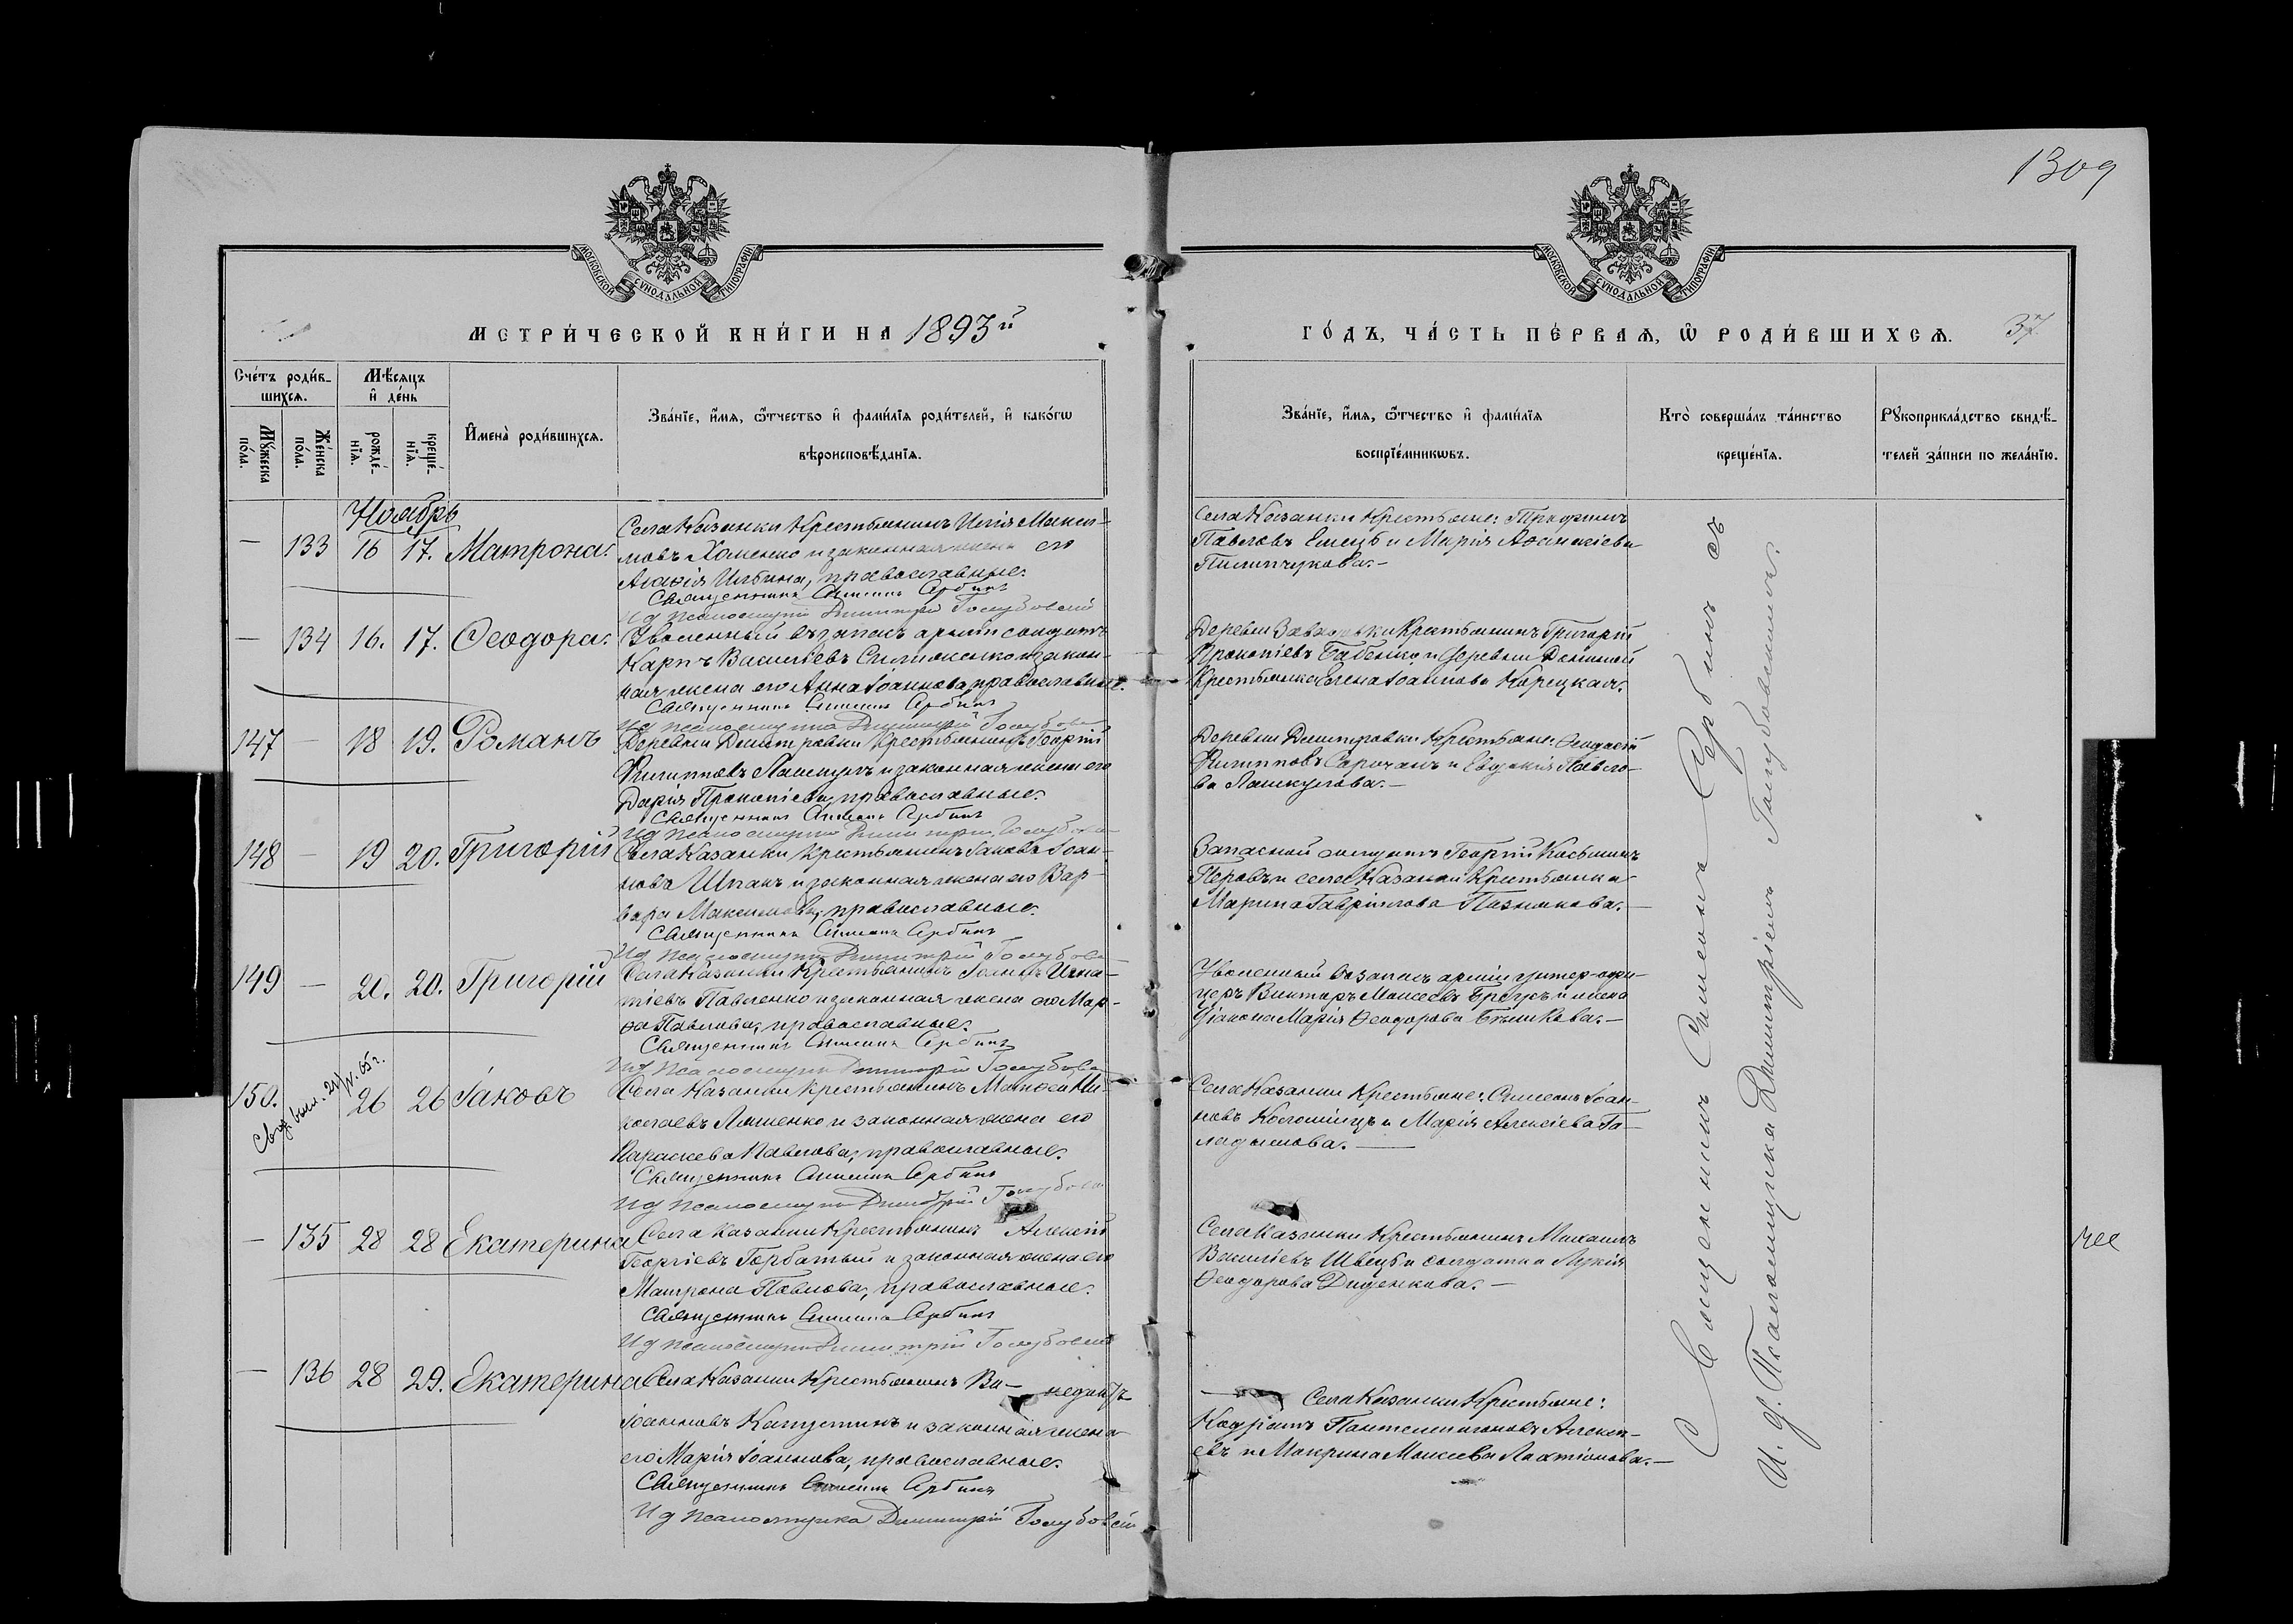 1309
МОСКОВСКОЙ СѴНОДАЛЬНОЙ ТИПОГРАФІИ
МОСКОВСКОЙ СѴНОДАЛЬНОЙ ТИПОГРАФІИ
МЕТРИ́ЧЕСКОЙ КНИ́ГИ НА 1893й
ГО́ДЪ, ЧА́СТЬ ПЕ́РВАЯ, Ѡ РОДИ́ВШИХСЯ. 37
Сче́тъ роди́в-
шихсѧ.
Мꙋ́жеска
по́ла.
Же́нска
по́ла.
Мѣ́сѧцъ
и҆ де́нь
рожде́-
нїѧ.
креще́-
нїѧ.
И҆мена̀ роди́вшихсѧ.
Зва́нїе, и҆́мѧ, ѻ҆́тчество и҆ фами́лїѧ роди́телей, и҆ како́гѡ
вѣроисповѣ́данїѧ.
Зва́нїе, и҆́мѧ, ѻ҆́тчество и҆ фами́лїѧ
воспрїе́мникѡвъ.
Кто̀ соверша́лъ та́инство
креще́нїѧ.
Рꙋкоприкла́дство свидѣ́-
телей за́писи по жела́нїю.
Ноябрь
— 133 16 17. Матрона.
Села Казанки Крестьянинъ Илія Макси-
мовъ Хоменко и законная жена его
Агафія Ильина, православные.
Священникъ Симеонъ Сербинъ
И д псаломщика Димитрій Голубовскій
Села Казанки Крестьяне: Трофимъ
Павловъ Емецъ и Марія Афанасіева
Пилипчукова.—
— 134 16. 17. Ѳеодора.
Уволенный въ запасъ арміи солдатъ
Карпъ Василіевъ и закон-
ная жена его Анна Іоаннова, православные.
Священникъ Симеонъ Сербинъ
И д псаломщика Димитрій Голубовскій
Деревни Крестьянинъ Григорій
Прокопіевъ Бабенко и деревни
Крестьянка Елена Іоаннова Корецкая.
147 — 18 19. Романъ
Деревни Дмитровки Крестьянинъ Георгій
Филипповъ Лашкулъ и законная жена его
Дарія Прокопіева, православные.
Священникъ Симеонъ Сербинъ
И д псаломщика Димитрій Голубовскій
Деревни Дмитровки Крестьяне: Ѳеодосій
Филипповъ Сарочанъ и Евдокія Павло-
ва Лашкулова.—
148 — 19 20. Григорій
Села Казанки Крестьянинъ Іаковъ Іоан-
новъ Шпакъ и законная жена его Вар-
вара Максимова, православные.
Священникъ Симеонъ Сербинъ
И д псаломщика Димитрій Голубовскій
Запасной солдатъ Георгій Косьминъ
Перовъ и села Казанки Крестьянка
Марина Гавріилова Познякова.—
149 — 20. 20. Григорій
Села Казанки Крестьянинъ Іоаннъ Игна-
тіевъ Павленко и законная жена его Мар-
ѳа Павлова, православные.
Священникъ Симеонъ Сербинъ
И д псаломщика Димитрій Голубовскій
Уволенный въ запасъ арміи унтер-офи-
церъ Викторъ Моисеевъ и жена
діакона Марія Ѳеодорова
150. 26 26 Іаковъ
Села Казанки Крестьянинъ Матѳей Ни-
колаевъ Ляшенко и законная жена его
Параскева Павлова, православные.
Священникъ Симеонъ Сербинъ
И д псаломщика Димитрій Голубовскій
Села Казанки Крестьяне: Симеонъ Іоан-
новъ Коломіецъ и Марія Алексіева Га-
ладымова.—
— 135 28 28 Екатерина
Села Казанки Крестьянинъ Алексій
Георгіевъ Горбатый и законная жена его
Матрона Павлова, православные.
Священникъ Симеонъ Сербинъ
И д псаломщика Димитрій Голубовскій
Села Казанки Крестьянинъ Михаилъ
Василіевъ Швецъ и солдатка Лукія
Ѳеодорова Диденкова.—
— 136 28 29. Екатерина
Села Казанки Крестьянинъ Ве- недиктъ
Іоанновъ Капустинъ и законная жена
его Марія Іоаннова, православные.
Священникъ Симеонъ Сербинъ
И д псаломщика Димитрій Голубовскій
Села Казанки Крестьяне:
Кодратъ Пантелеимоновъ Алексе-
евъ и Макрина Моисеева Лактіонова.—
Священникъ Симеонъ Сербинъ съ
И. д. Псаломщика Димитріемъ Голубовскимъ.